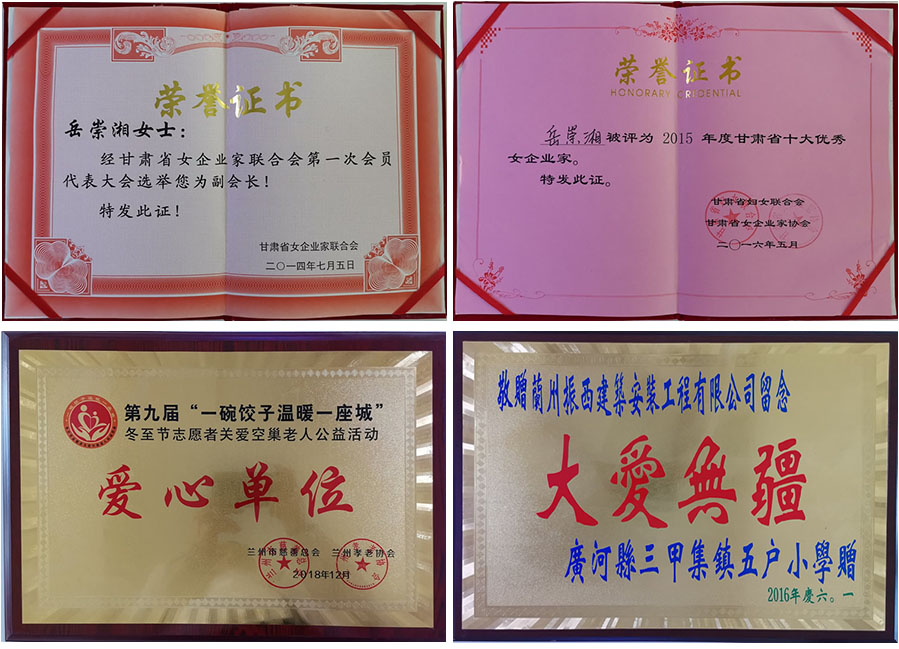 荣誉证书
岳崇湘女士：
经甘肃省女企业家联合会第一次会员
代表大会选举您为副会长！
特发此证！
甘肃省女企业家联合会
二〇一四年七月五日
荣誉证书
HONORARY CREDENTIAL
岳崇湘被评为 2015 年度甘肃省十大优秀
女企业家。
特发此证。
甘肃省妇女联合会
甘肃省女企业家协会
二〇一六年五月
第九届“一碗饺子温暖一座城”
冬至节志愿者关爱空巢老人公益活动
爱心单位
兰州市慈善总会 兰州孝老协会
2018年12月
敬赠蘭州振西建築安装工程有限公司留念
大愛無疆
廣河縣三甲集镇五户小學赠
2016年慶六。一